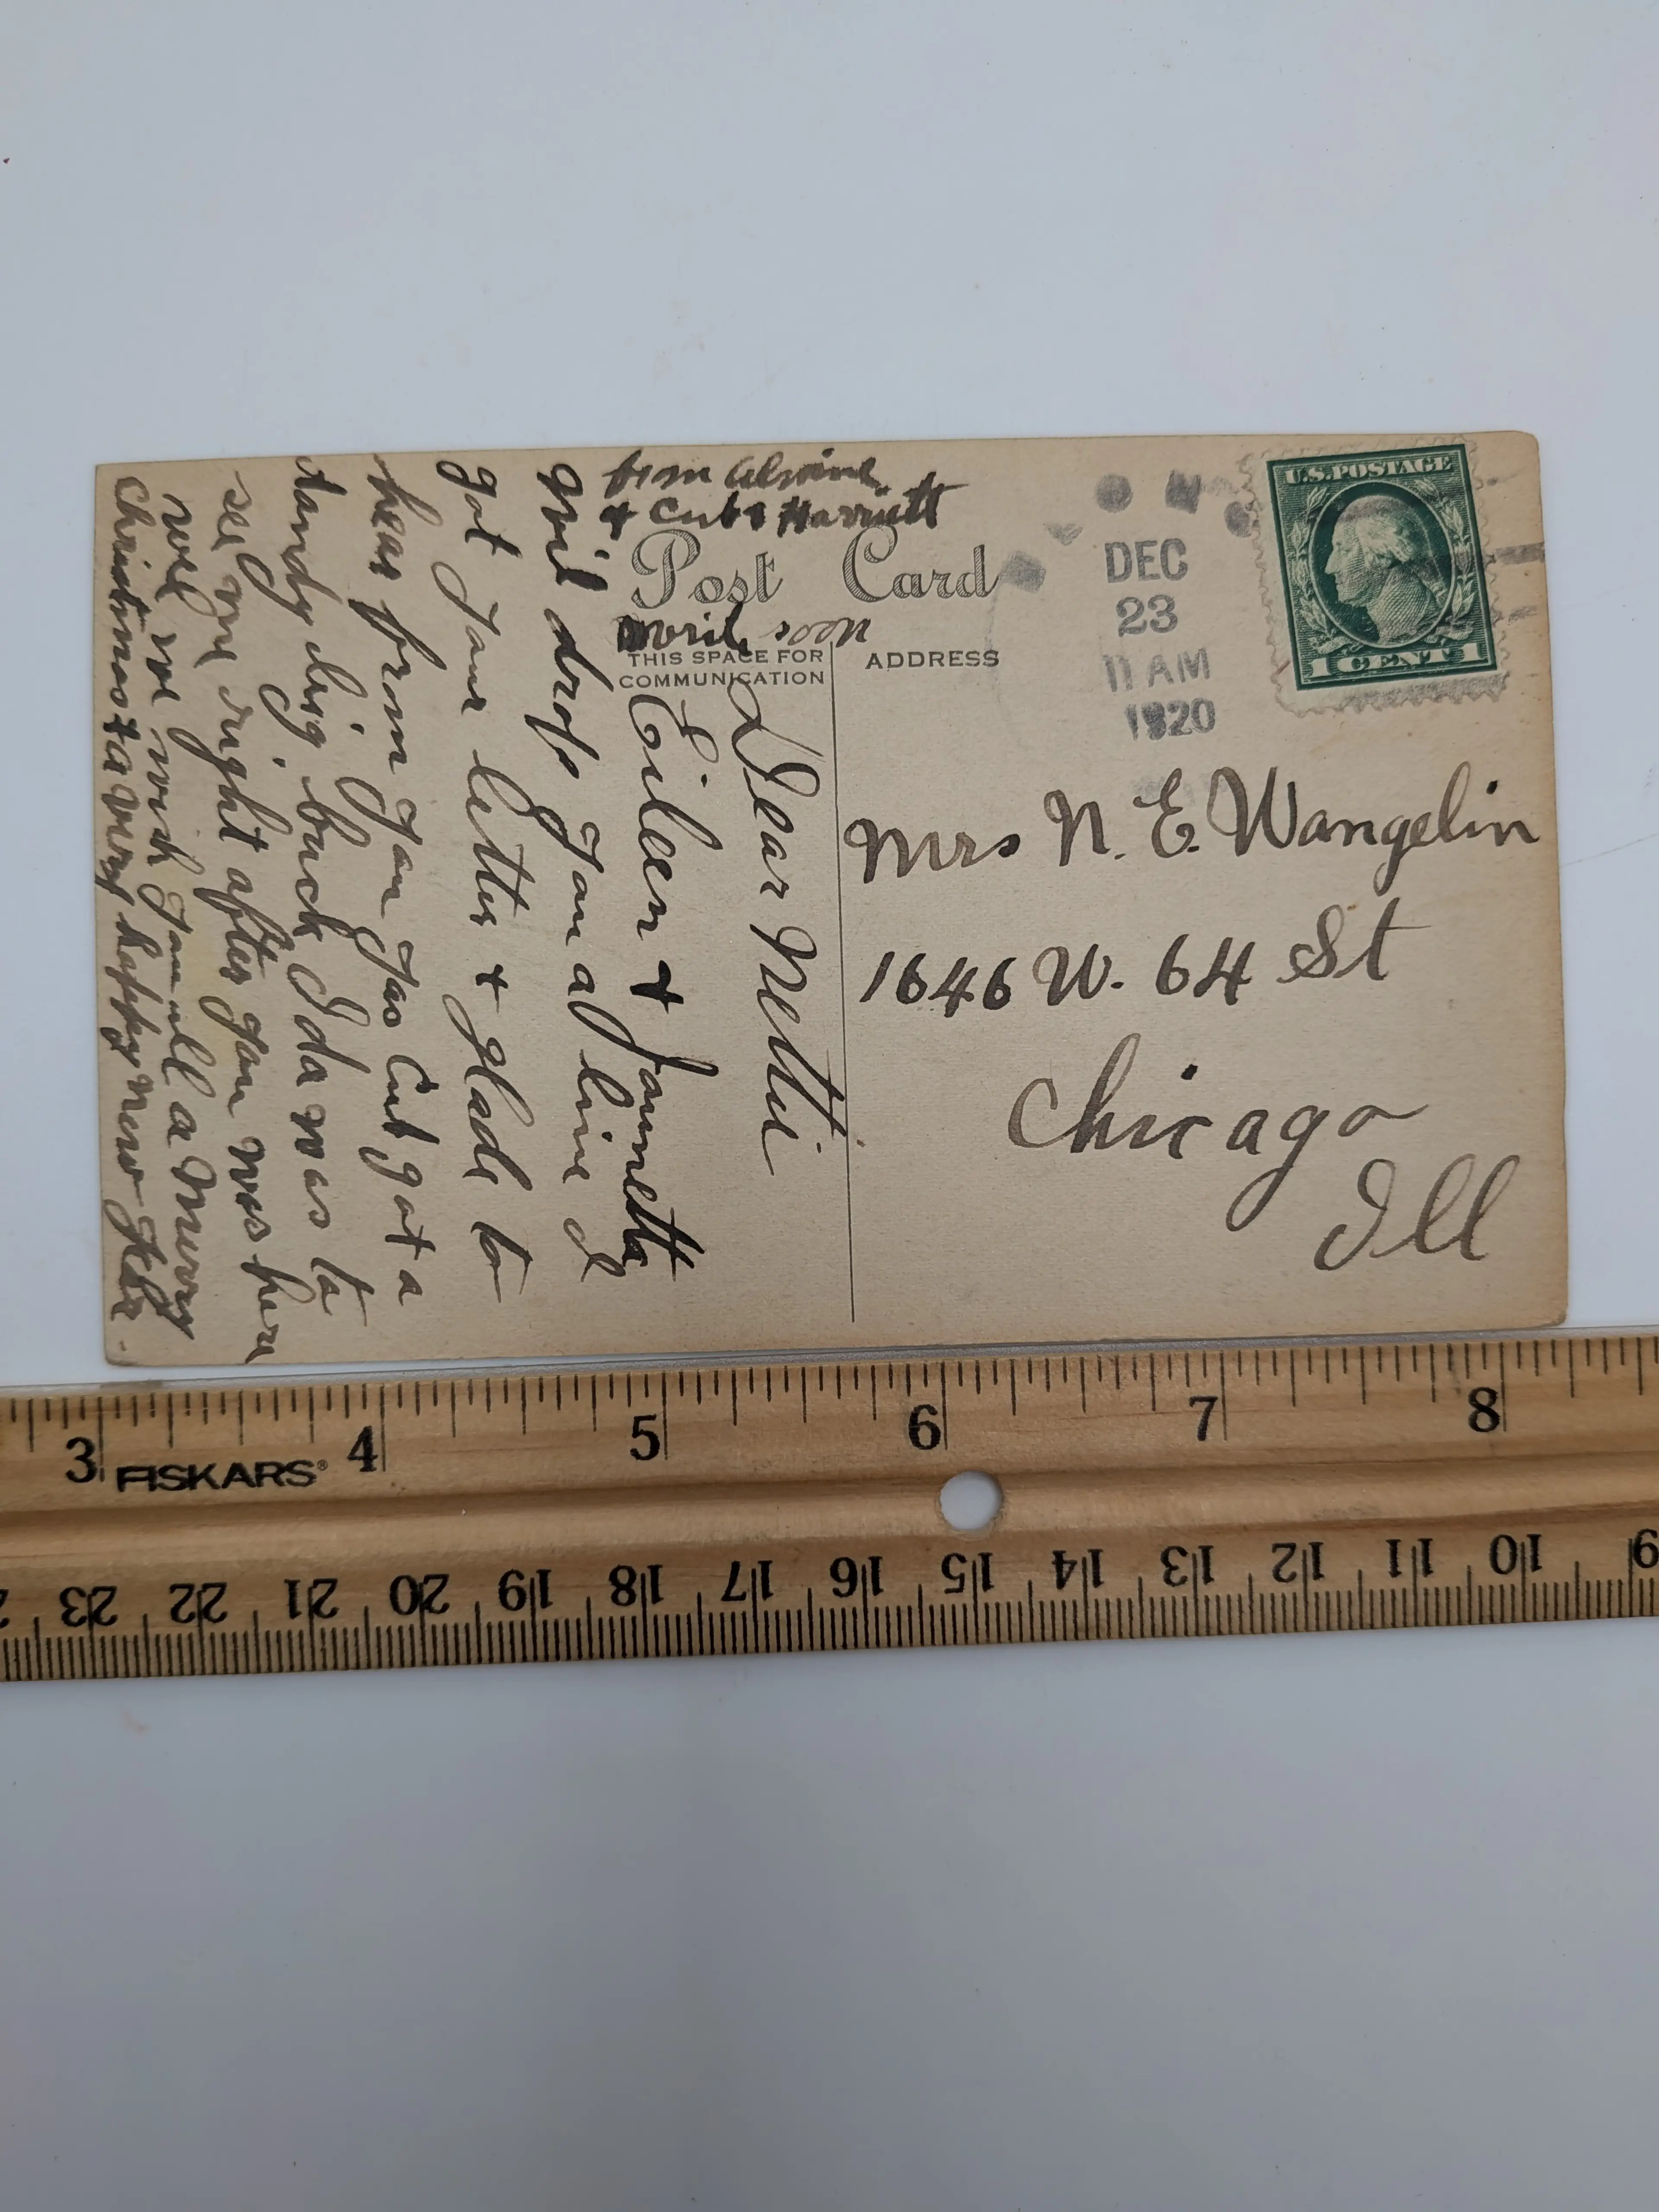 from Alvine
+ Curt + Harriett
Post Card
write soon
THIS SPACE FOR
COMMUNICATION
ADDRESS
U.S. POSTAGE
1 CENT 1
DEC
23
11 AM
1920
Mrs N. E. Wangelin
1646 W. 64 St
Chicago
Ill
Dear Nettie
Eileen + Jannetta
will drop you a line I
got your letter + glade to
hear from you yas Curt got a
dandy big buck Ida was to
see me right after you was here
well we wish you all a Merry
Christmas + a very happy new year.
3 4 5 6 7 8
FISKARS®
23 22 21 20 19 18 17 16 15 14 13 12 11 10 9